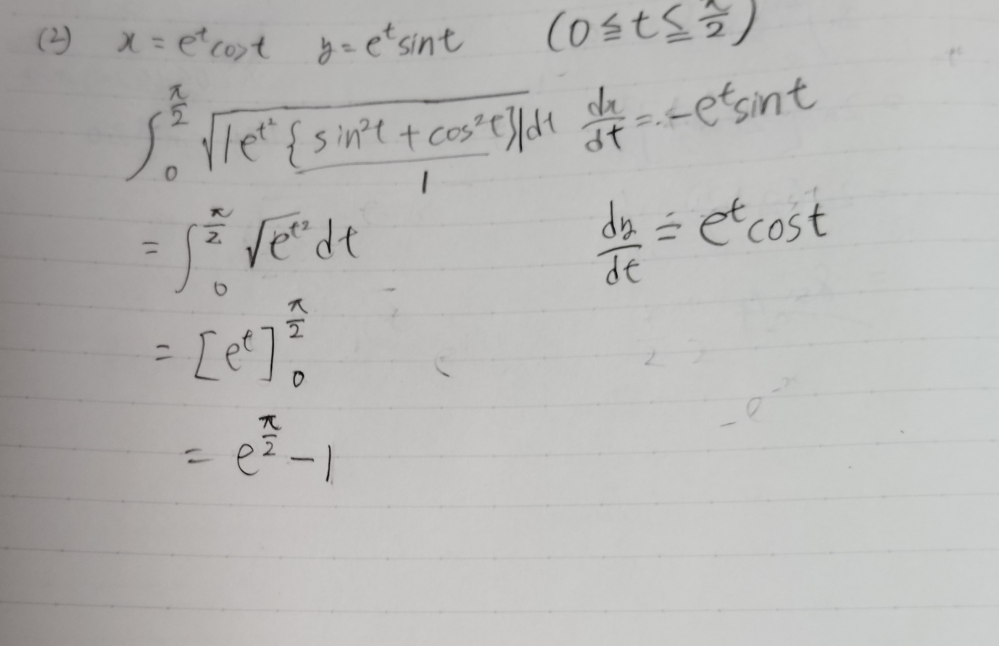 (2) x = e^t cost y = e^t sint (0 ≦ t ≦ π/2)
∫_0^{π/2} √|e^{t^2} {sin²t + cos²t}| dt dx/dt = -e^t sint
1
= ∫_0^{π/2} √e^{t^2} dt dy/dt = e^t cost
= [e^t]_0^{π/2}
= e^{π/2} - 1